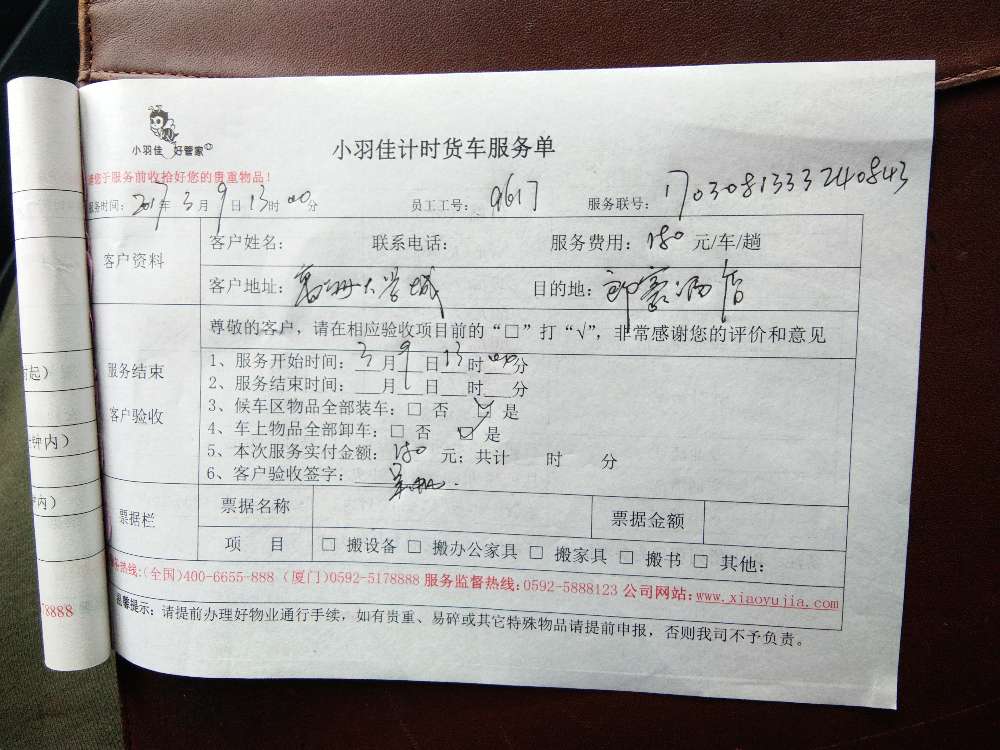 小羽佳 好管家
小羽佳计时货车服务单
请您于服务前收拾好您的贵重物品！
服务时间：2017年3月9日13时00分 员工工号：9617 服务联号：170308133324 0843
客户资料
客户姓名： 联系电话： 服务费用：180 元/车/趟
客户地址：大学城 目的地：酒店
尊敬的客户，请在相应验收项目前的“□”打“√”，非常感谢您的评价和意见
服务结束
客户验收
1、服务开始时间：3月9日13时00分
2、服务结束时间：___月___日___时___分
3、候车区物品全部装车：□ 否 ☑ 是
4、车上物品全部卸车：□ 否 ☑ 是
5、本次服务实付金额：180 元；共计 时 分
6、客户验收签字：
票据栏
票据名称 票据金额
项 目 □ 搬设备 □ 搬办公家具 □ 搬家具 □ 搬书 □ 其他：
热线:(全国)400-6655-888 (厦门)0592-5178888 服务监督热线:0592-5888123 公司网站:www.xiaoyujia.com
温馨提示：请提前办理好物业通行手续，如有贵重、易碎或其它特殊物品请提前申报，否则我司不予负责。
起）
钟内）
内）
78888